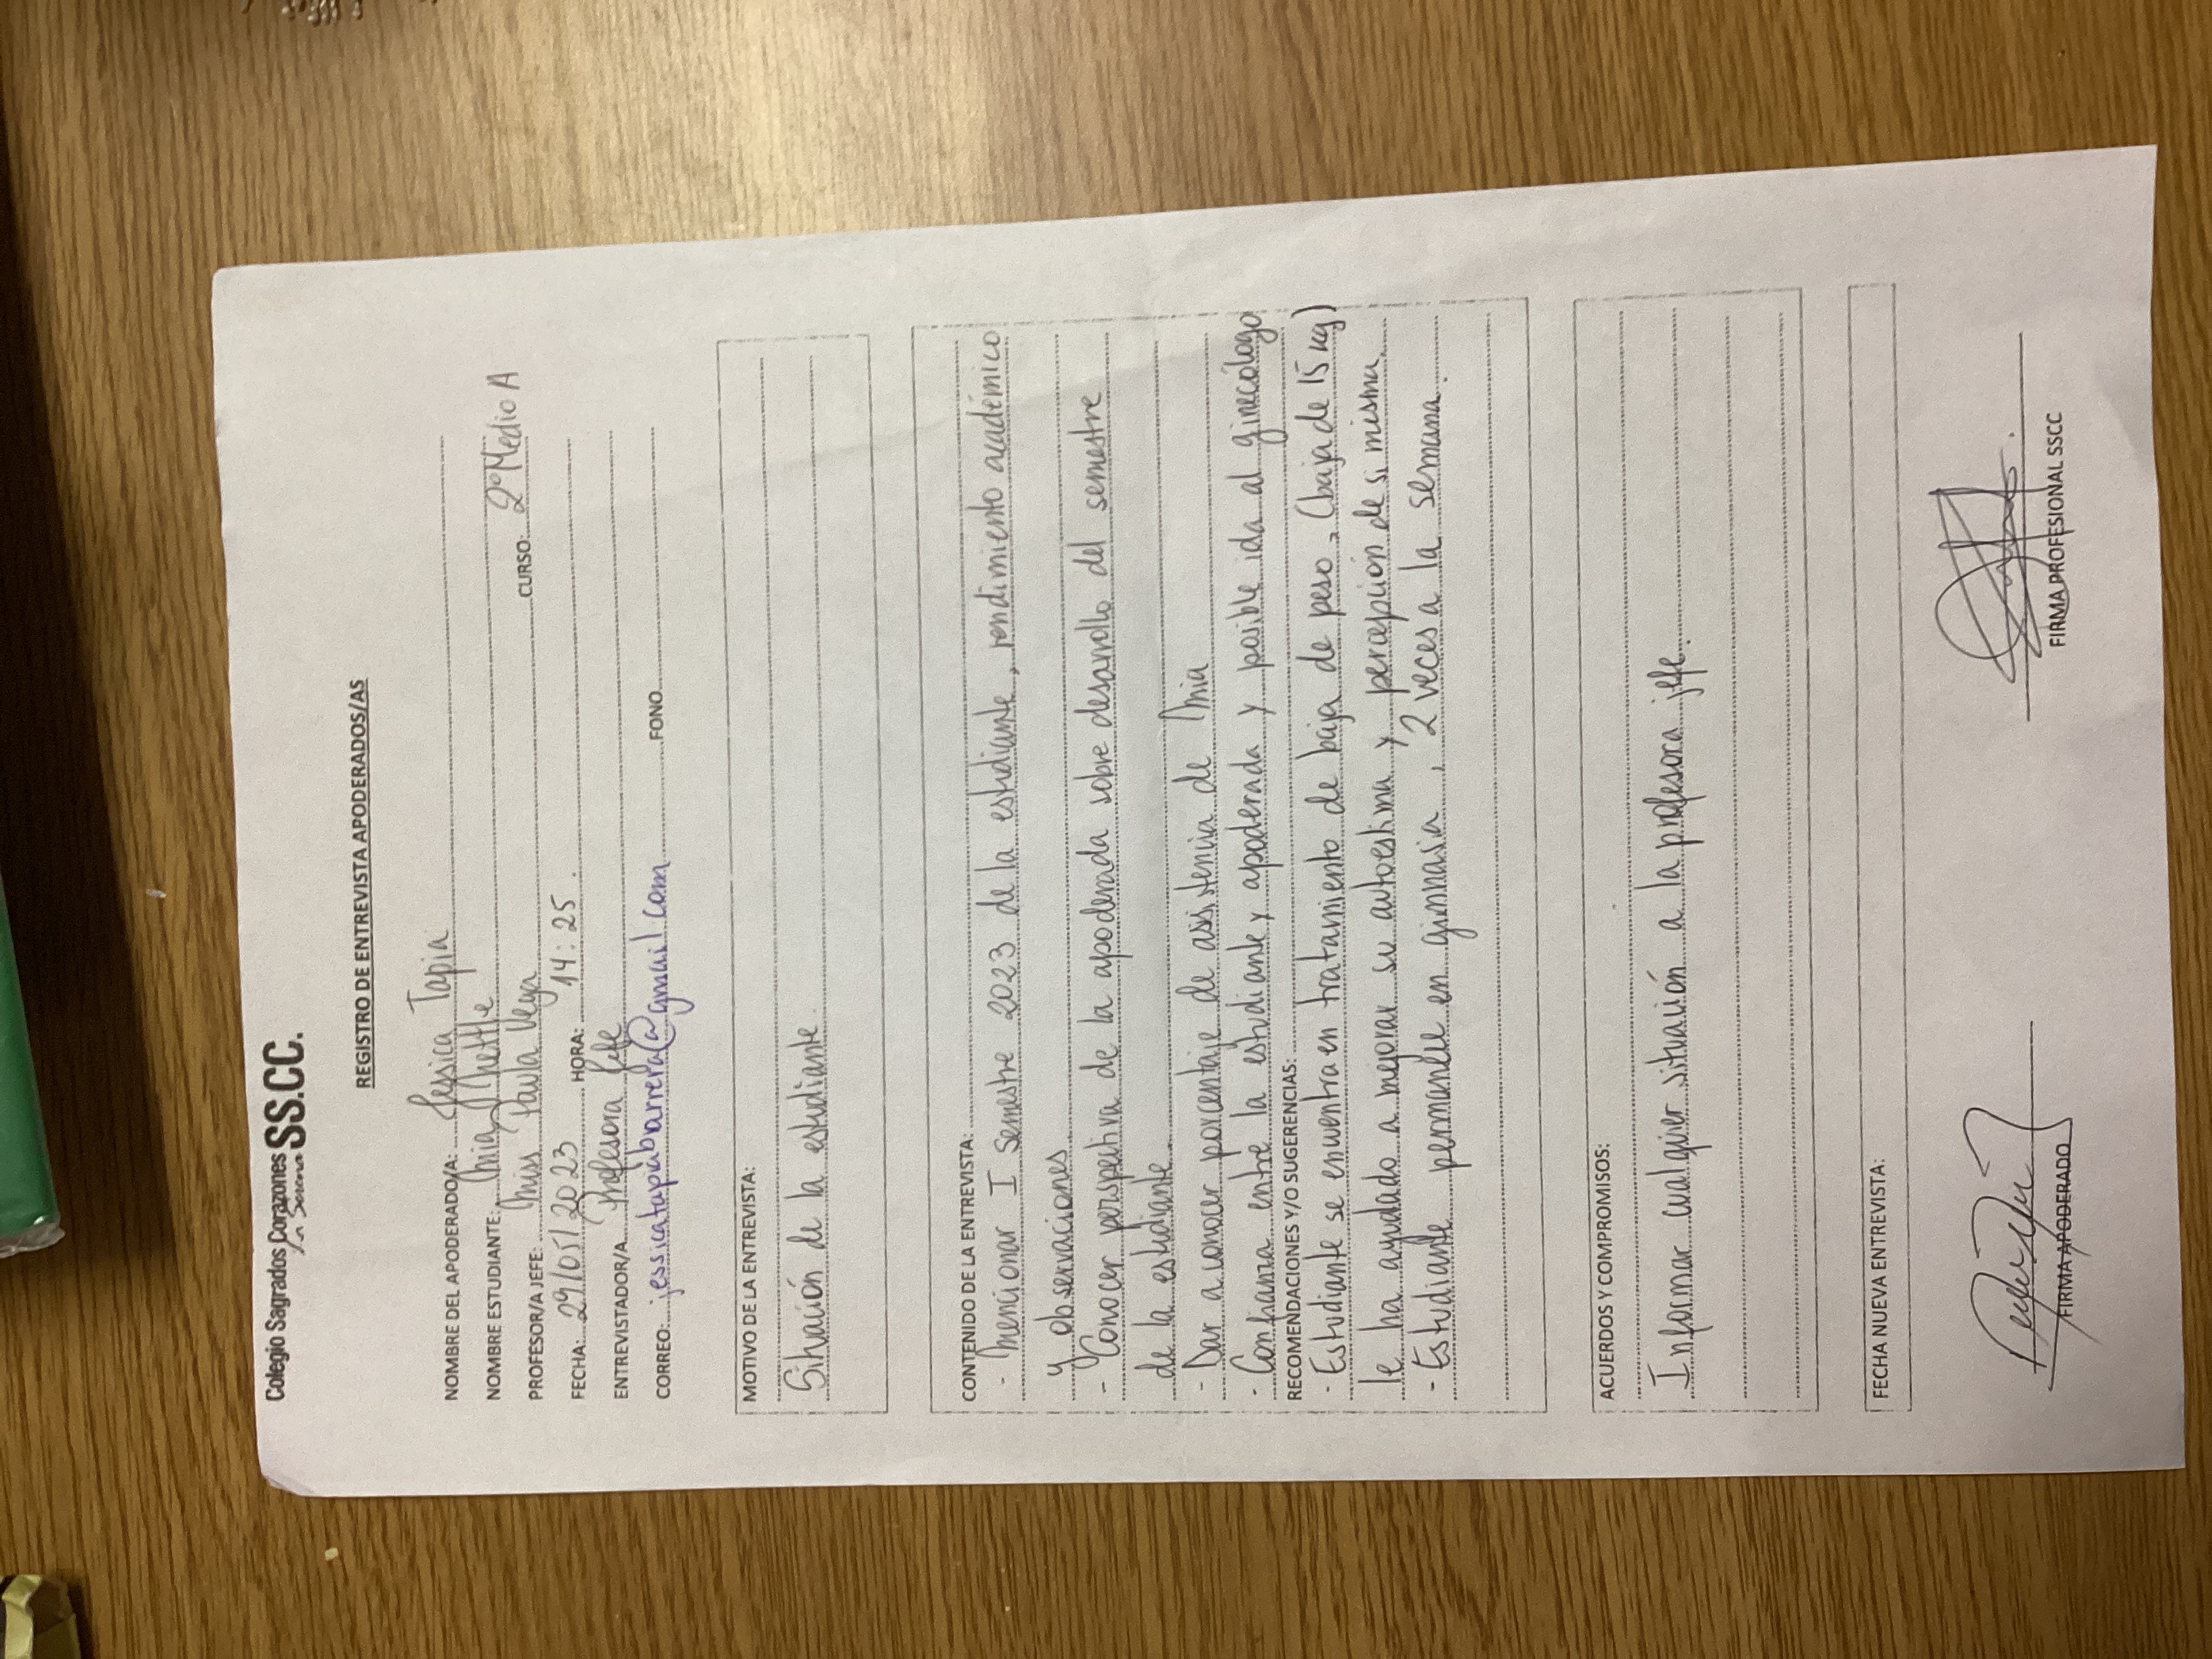 Colegio Sagrados Corazones SS.CC.
La Serena
REGISTRO DE ENTREVISTA APODERADOS/AS
NOMBRE DEL APODERADO/A: Jessica Tapia
NOMBRE ESTUDIANTE: Mia
PROFESOR/A JEFE: Miss Paula Vega CURSO: 2º Medio A
FECHA: 29/05/2023 HORA: 14:25.
ENTREVISTADOR/A Profesora Jefe
CORREO: jessicatapiabarrera@gmail.com FONO
MOTIVO DE LA ENTREVISTA:
Situación de la estudiante.
CONTENIDO DE LA ENTREVISTA:
- Mencionar I semestre 2023 de la estudiante, rendimiento académico
y observaciones
- Conocer perspectiva de la apoderada sobre desarrollo del semestre
de la estudiante.
- Dar a conocer porcentaje de asistencia de Mia
- Confianza entre la estudiante y apoderada y posible ida al ginecólogo
RECOMENDACIONES Y/O SUGERENCIAS:
- Estudiante se encuentra en tratamiento de baja de peso, (baja de 15 kg)
le ha ayudado a mejorar su autoestima y percepción de si misma.
- Estudiante permanece en gimnasia, 2 veces a la semana.
ACUERDOS Y COMPROMISOS:
Informar cualquier situación a la profesora jefe.
FECHA NUEVA ENTREVISTA:
FIRMA APODERADO
FIRMA PROFESIONAL SSCC